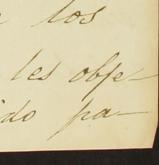 los
les obje-
ido pa-